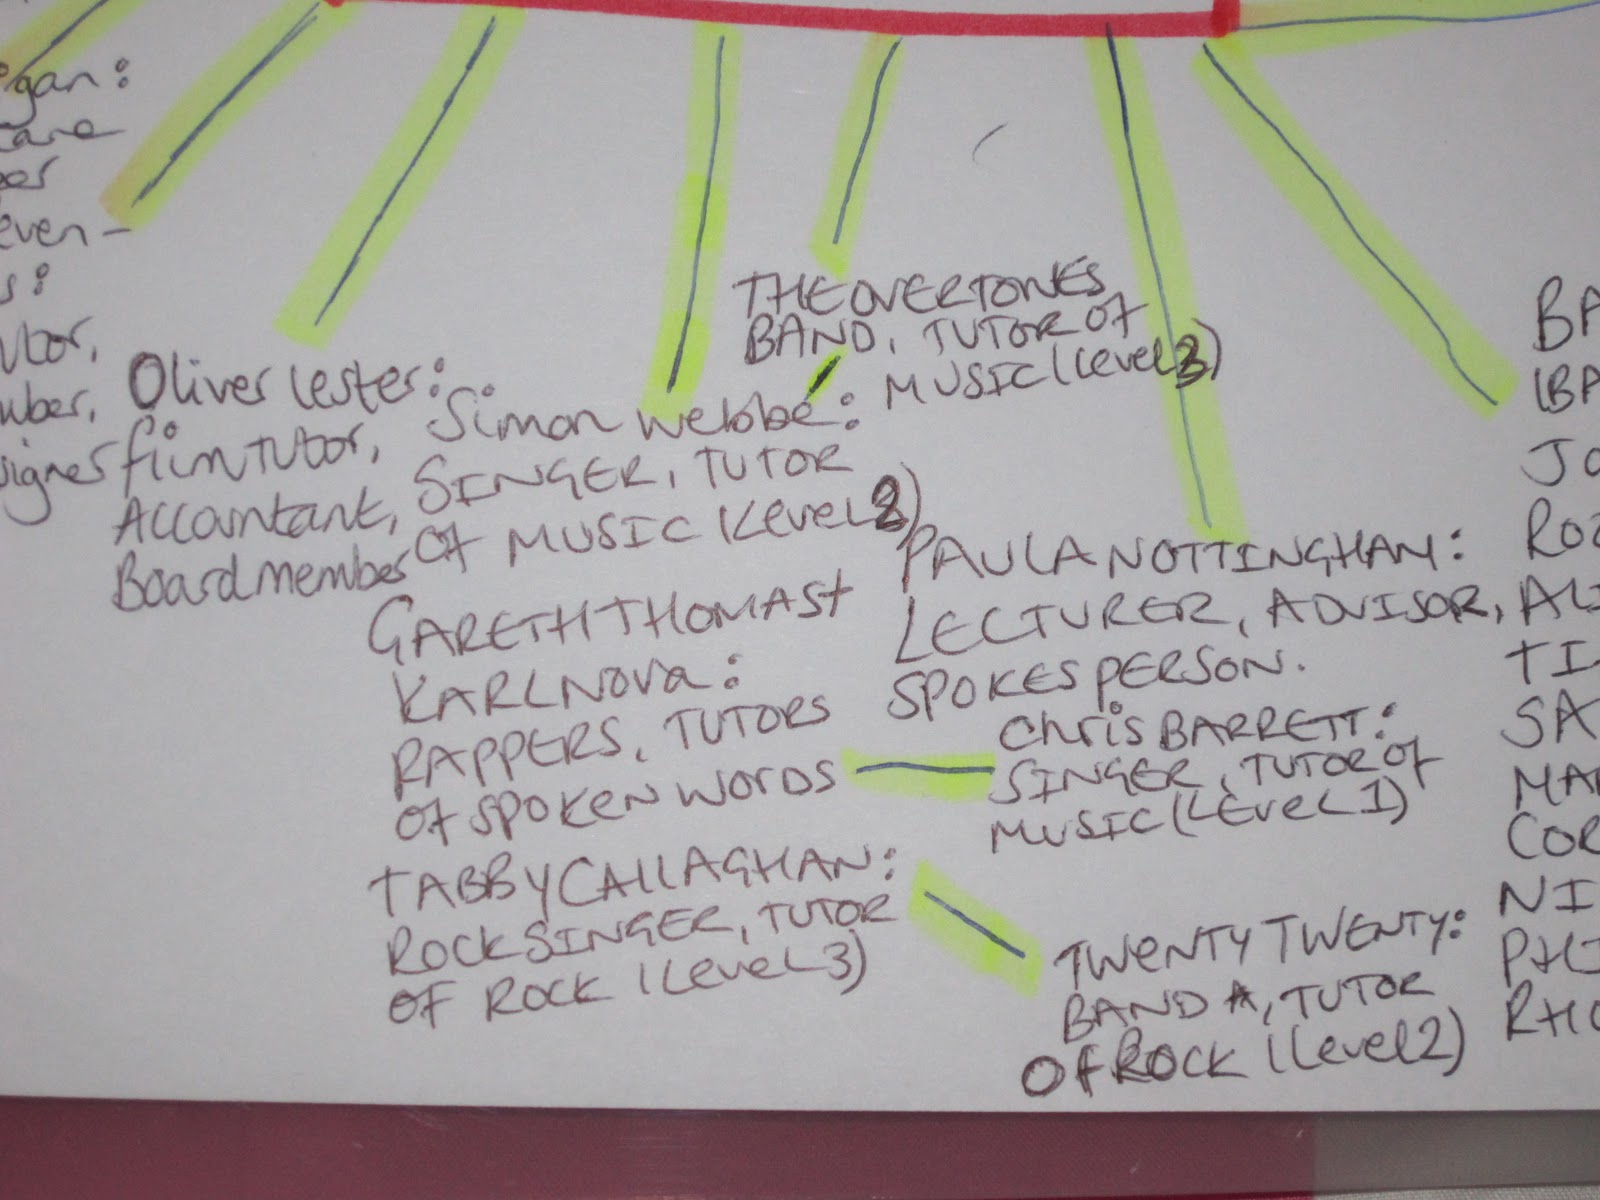 Oliver Lester:
film TUTOR,
Accountant,
Board member
Simon Webbe:
SINGER, TUTOR
OF MUSIC (Level 2)
THE OVERTONES
BAND, TUTOR OF
MUSIC (Level 3)
GARETH THOMAS +
KARL NOVA:
RAPPERS, TUTORS
OF SPOKEN WORDS
PAULA NOTTINGHAM:
LECTURER, ADVISOR,
SPOKESPERSON.
Chris BARRETT:
SINGER, TUTOR OF
MUSIC (LEVEL 1)
TABBY CALLAGHAN:
ROCK SINGER, TUTOR
OF ROCK (Level 3)
TWENTY TWENTY:
BAND, TUTOR
OF ROCK (Level 2)